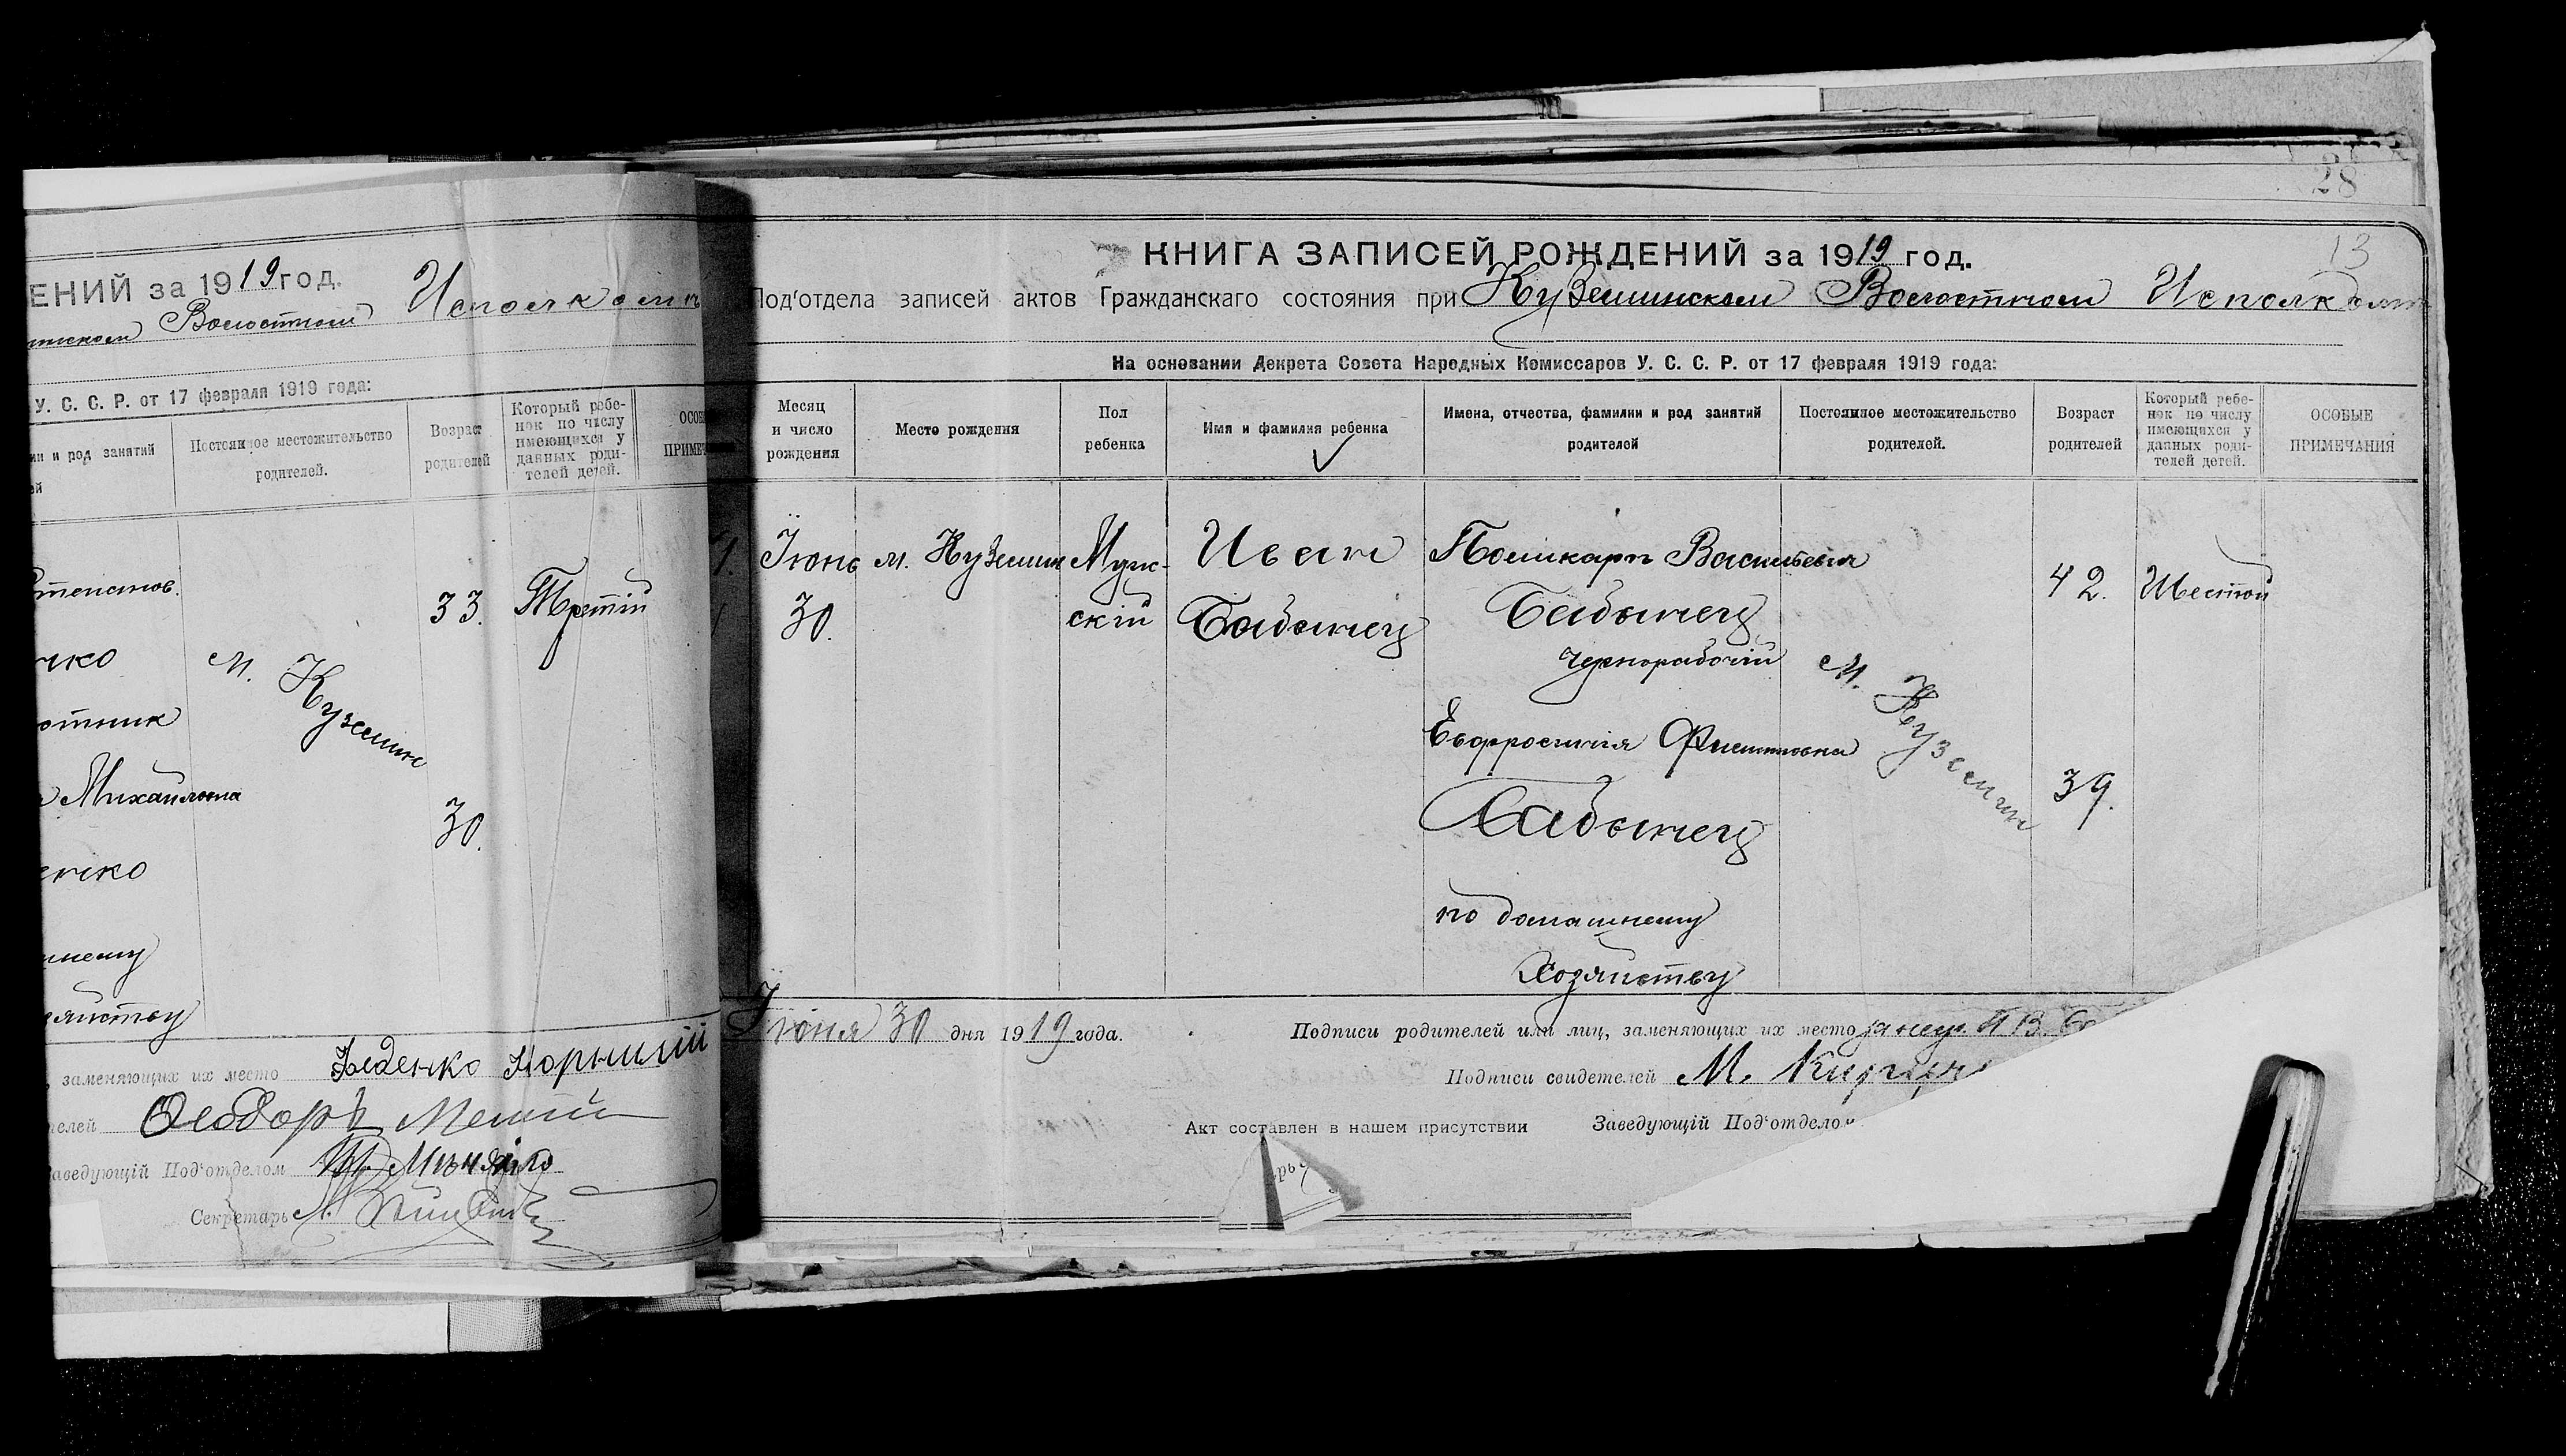 28
ЕНИЙ за 1919 год.
Волостном Исполкоме
У. С. С. Р. от 17 февраля 1919 года:
ии и род занятий
ей
Постоянное местожительство
родителей.
Возраст
родителей
Который ребе-
нок по числу
имеющихся у
данных роди-
телей детей.
ОСОБ
ПРИМЕЧ
Степанов.
33.
Третій
м. Куземин
отник
Михайловна
30.
нему
зяйству
, заменяющих их место
Ѳеодоръ
телей
Заведующій Под'отделом
Секретарь
13
КНИГА ЗАПИСЕЙ РОЖДЕНИЙ за 1919 год.
Под'отдела записей актов Гражданскаго состояния при Куземинском Волостном Исполкоме
На основании Декрета Совета Народных Комиссаров У. С. С. Р. от 17 февраля 1919 года:
Месяц
и число
рождения
Место рождения
Пол
ребенка
Имя и фамилия ребенка
Имена, отчества, фамилии и род занятий
родителей
Постоянное местожительство
родителей.
Возраст
родителей
Который ребе-
нок по числу
имеющихся у
данных роди-
телей детей.
ОСОБЫЕ
ПРИМЕЧАНИЯ
Іюнь
30.
м. Куземин
Муж-
скій
Иван
Бабанец
Поликарп Васильевич
Бабанец
чернорабочій
Евфросинія Филиповна
Бабанец
по домашнему
Хозяйству
м. Куземин
42.
39.
Шестой
Іюня 30 дня 1919 года.
Подписи родителей или лиц, заменяющих их место
Подписи свидетелей М.
Акт составлен в нашем присутствии
Заведующій Под'отделом